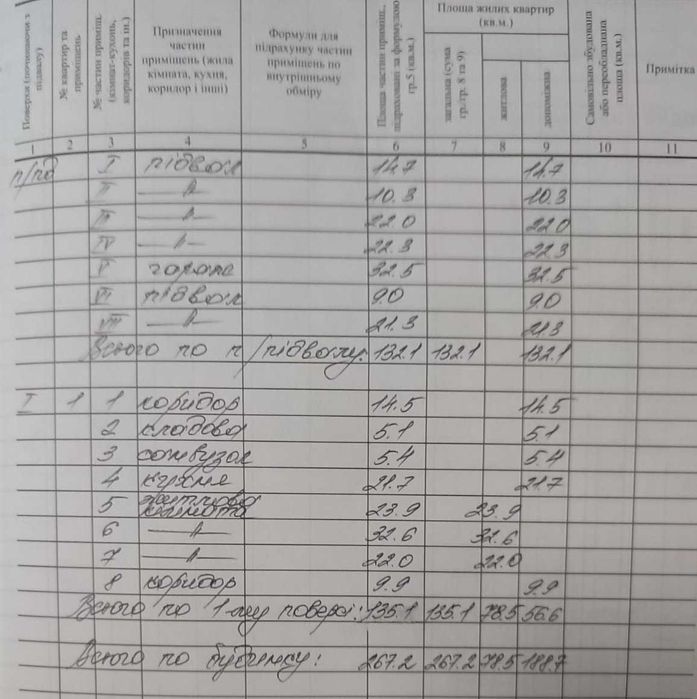 Поверхи (починаючи з підвалу) | № квартир та приміщень | № частин приміщ. (кімнат-кухонь, коридорів та ін.) | Призначення частин приміщень (жила кімната, кухня, коридор і інші) | Формули для підрахунку частин приміщень по внутрішньому обміру | Площа частин приміщ., підраховано за формулою гр.5 (кв.м.) | Площа жилих квартир (кв.м.) | загальна (сума гр./гр. 8 та 9) | житлова | допоміжна | Самовільно збудована або переобладнана площа (кв.м.) | Примітка
1 2 3 4 5 6 7 8 9 10 11
п/пд I підвал 14.7 14.7
II —"— 10.3 10.3
III —"— 22.0 22.0
IV —"— 22.3 22.3
V гараж 32.5 32.5
VI підвал 9.0 9.0
VII —"— 21.3 21.3
Всього по п/підвалу: 132.1 132.1 132.1
I 1 1 коридор 14.5 14.5
2 кладова 5.1 5.1
3 санвузол 5.4 5.4
4 кухня 21.7 21.7
5 житлова кімната 23.9 23.9
6 —"— 32.6 32.6
7 —"— 22.0 22.0
8 коридор 9.9 9.9
Всього по 1-му поверсі: 135.1 135.1 78.5 56.6
Всього по будинку: 267.2 267.2 78.5 188.7